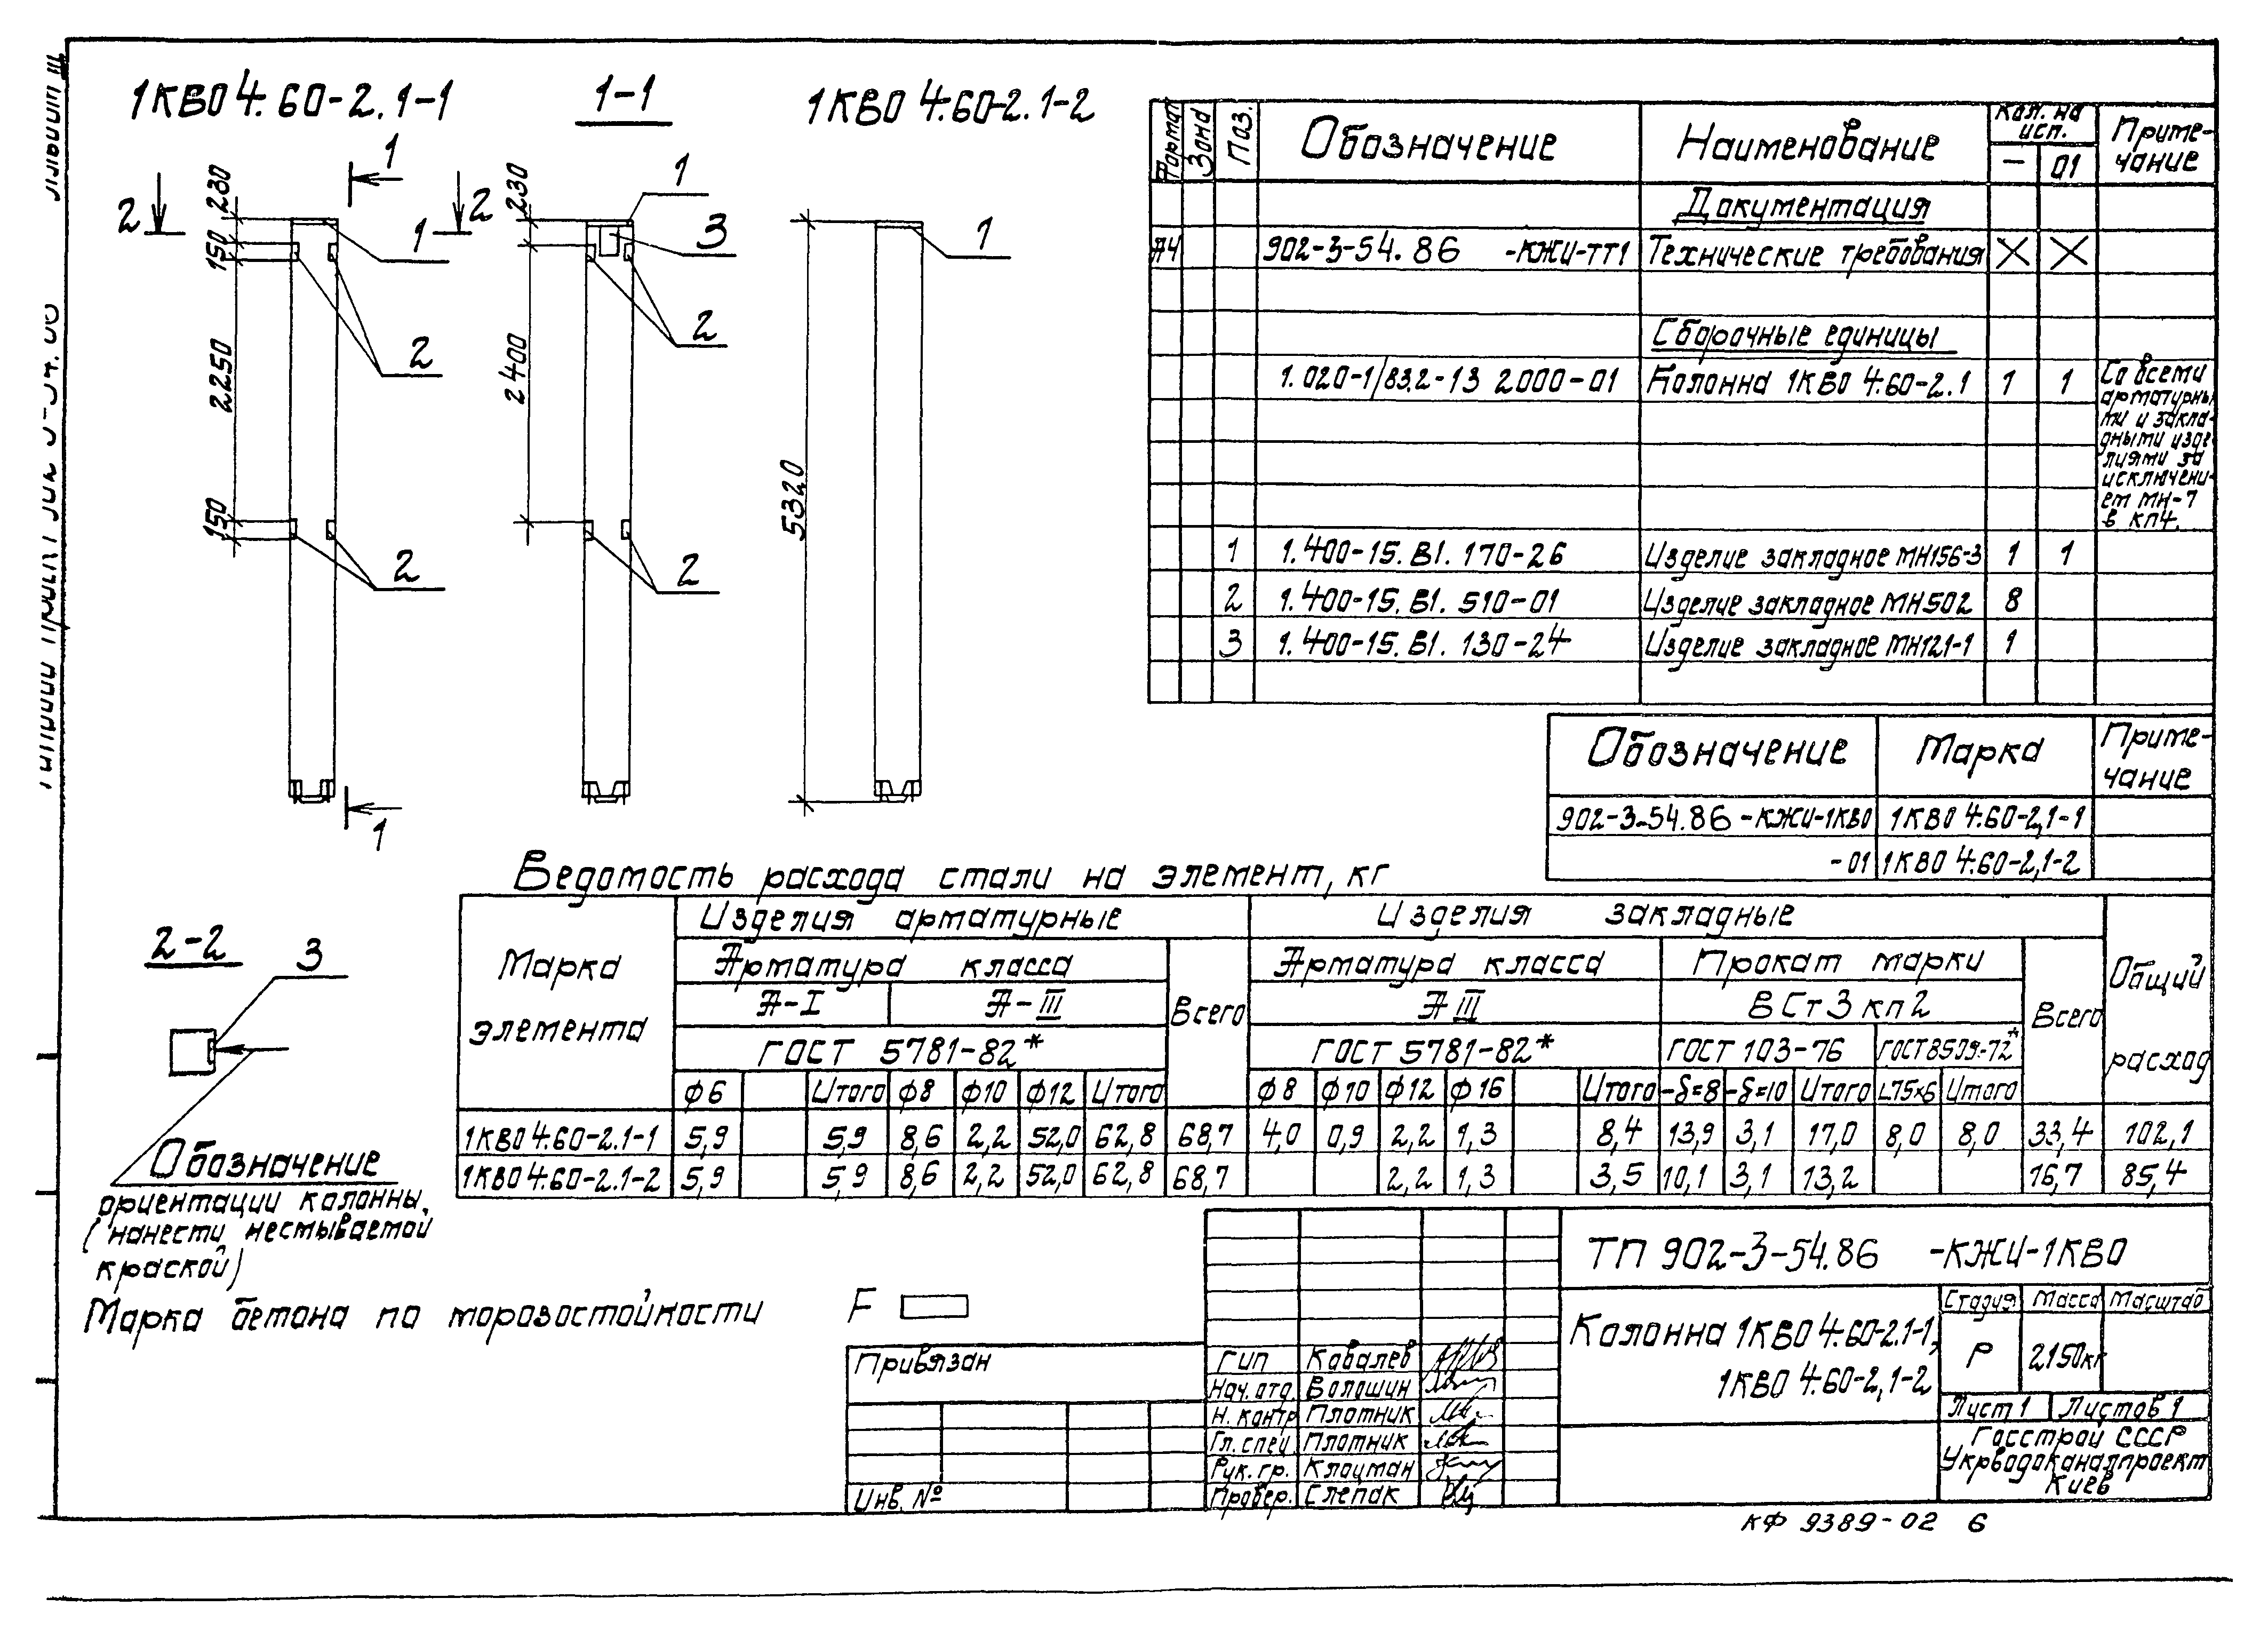 1КВО 4.60-2.1-1
1-1
1КВО 4.60-2.1-2
1
2
2
230
150
2250
150
1
2
2
1
230
2400
1
3
2
2
5320
1
Формат
Зона
Поз.
Обозначение
Наименование
Кол. на исп.
–
01
Примечание
Документация
А4
902-3-54.86 -КЖИ-ТТ1
Технические требования
Сборочные единицы
1.020-1/83.2-13 2000-01
Колонна 1КВО 4.60-2.1
1
1
Со всеми
арматурны
ми и закла-
дными изде
лиями за
исключени-
ем МН-7
в КП4.
1
1.400-15.В1.170-26
Изделие закладное МН156-3
1
1
2
1.400-15.В1.510-01
Изделие закладное МН502
8
3
1.400-15.В1.130-24
Изделие закладное МН121-1
1
Обозначение
Марка
Приме-
чание
902-3-54.86-КЖИ-1КВО
1КВО 4.60-2,1-1
-01
1КВО 4.60-2,1-2
Ведомость расхода стали на элемент, кг
Марка
элемента
Изделия арматурные
Изделия закладные
Арматура класса
Арматура класса
Прокат марки
Общий
расход
А-I
А-III
Всего
А III
ВСт3кп2
Всего
ГОСТ 5781-82*
ГОСТ 5781-82*
ГОСТ 103-76
ГОСТ 8509-72*
ф6 Итого ф8 ф10 ф12 Итого ф8 ф10 ф12 ф16 Итого -δ=8 -δ=10 Итого L75×6 Итого
1КВО 4.60-2.1-1 5,9 5,9 8,6 2,2 52,0 62,8 68,7 4,0 0,9 2,2 1,3 8,4 13,9 3,1 17,0 8,0 8,0 33,4 102,1
1КВО 4.60-2.1-2 5,9 5,9 8,6 2,2 52,0 62,8 68,7 2,2 1,3 3,5 10,1 3,1 13,2 16,7 85,4
2-2
3
Обозначение
ориентации колонны.
(нанести несмываемой
краской)
Марка бетона по морозостойкости F
Привязан
Инв. №
ГИП Ковалев
Нач. отд. Волошин
Н. контр Плотник
Гл. спец. Плотник
Рук. гр. Клоцман
Провер. Слепак
ТП 902-3-54.86 -КЖИ-1КВО
Колонна 1КВО 4.60-2.1-1,
1КВО 4.60-2,1-2
Стадия Масса Масштаб
Р 2150кг
Лист 1 Листов 1
Госстрой СССР
Укрводоканалпроект
Киев
КФ 9389-02 6